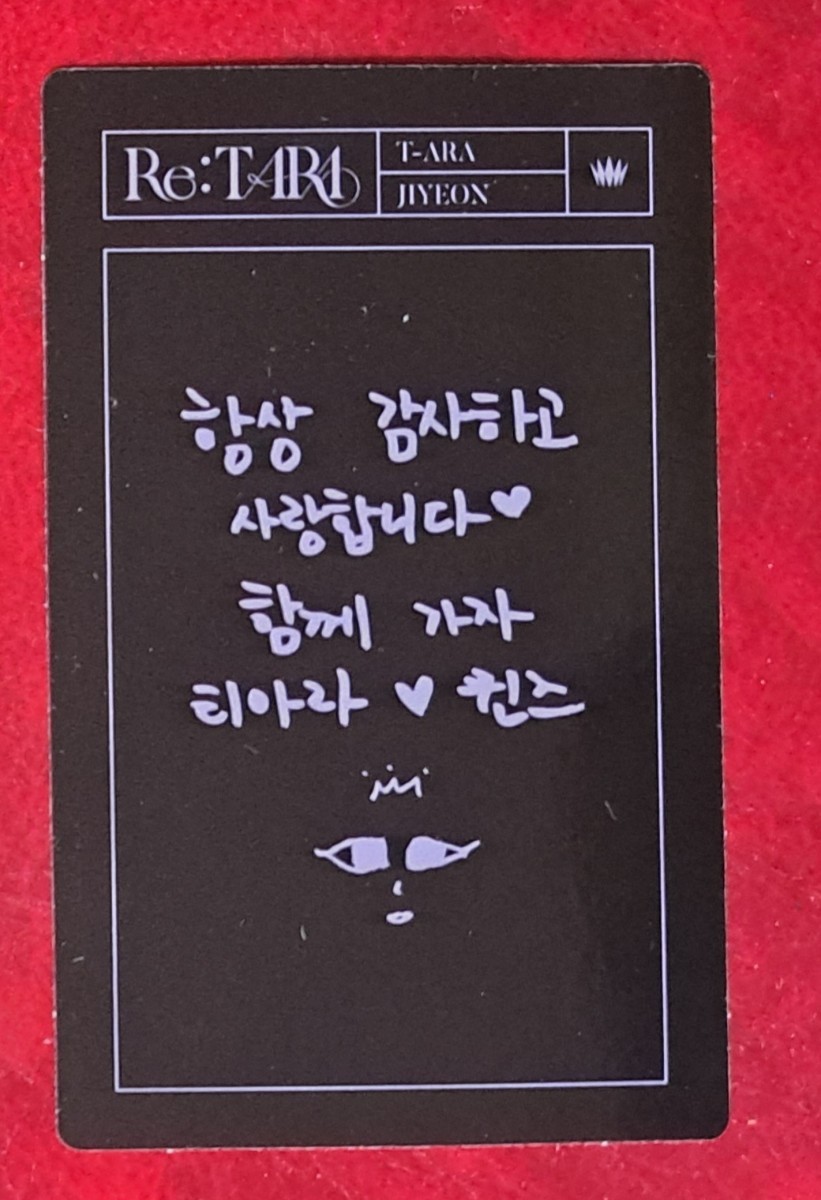 Re:T-ARA
T-ARA
JIYEON
항상 감사하고
사랑합니다♥
함께 가자
티아라 ♥ 퀸즈